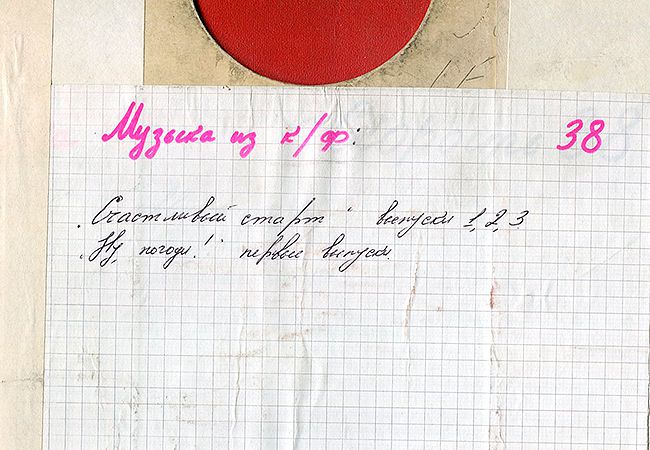 Музыка из к/ф: 38
„Счастливый старт" выпуски 1, 2, 3
„Ну, погоди!" первые выпуски.